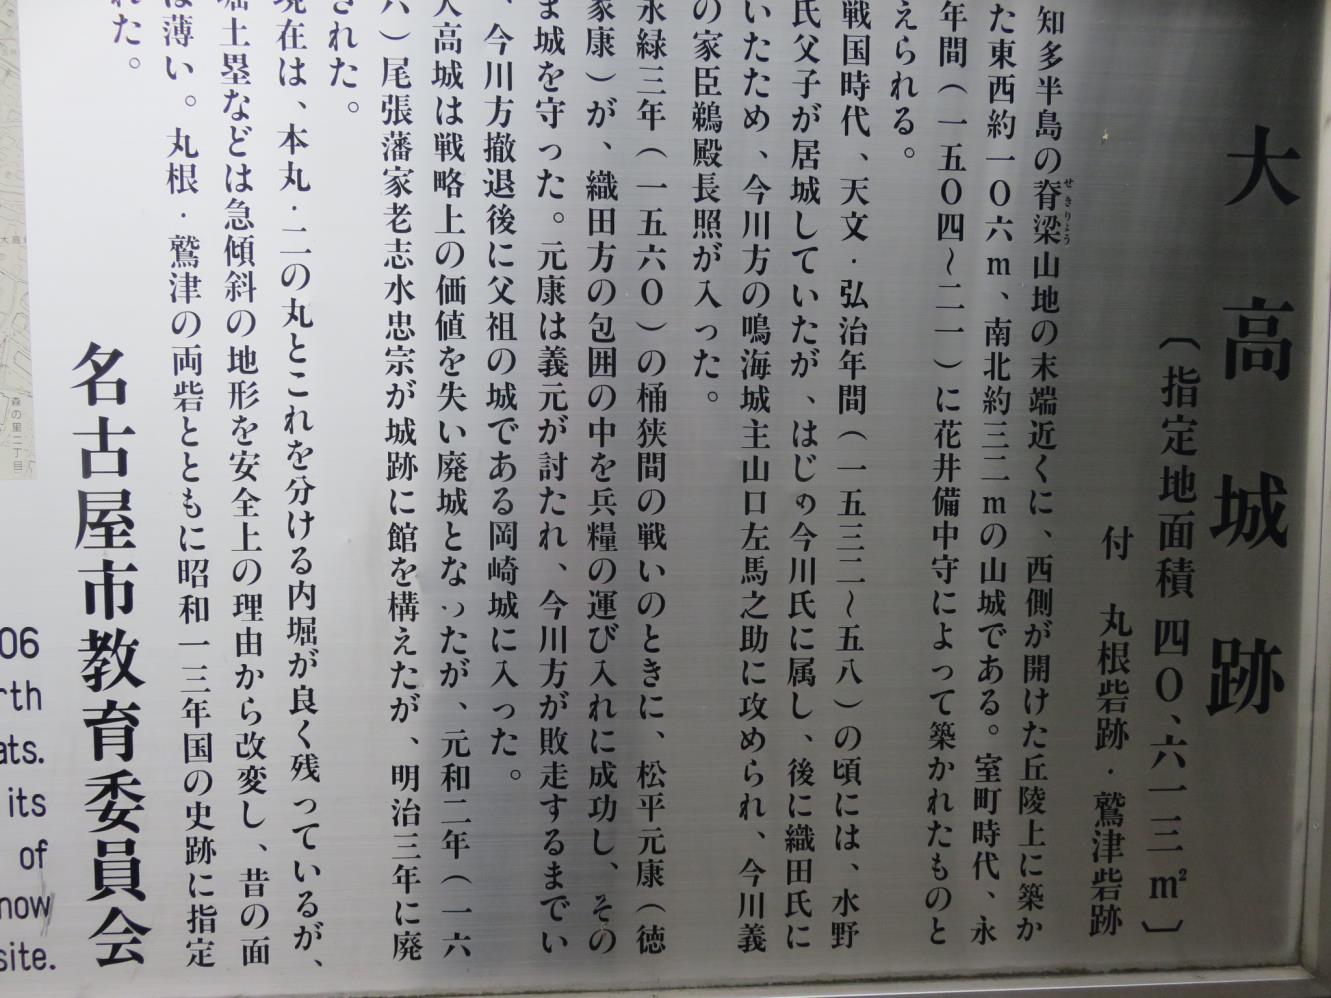 大高城跡
〔指定地面積 四〇、六一三㎡〕
付 丸根砦跡・鷲津砦跡
知多半島の脊梁山地の末端近くに、西側が開けた丘陵上に築か
せきりょう
た東西約一〇六m、南北約三二mの山城である。室町時代、永
年間（一五〇四～二一）に花井備中守によって築かれたものと
えられる。
戦国時代、天文・弘治年間（一五三二～五八）の頃には、水野
氏父子が居城していたが、はじめ今川氏に属し、後に織田氏に
いたため、今川方の鳴海城主山口左馬之助に攻められ、今川義
の家臣鵜殿長照が入った。
永緑三年（一五六〇）の桶狭間の戦いのときに、松平元康（徳
家康）が、織田方の包囲の中を兵糧の運び入れに成功し、その
ま城を守った。元康は義元が討たれ、今川方が敗走するまでい
、今川方撤退後に父祖の城である岡崎城に入った。
大高城は戦略上の価値を失い廃城となったが、元和二年（一六
六）尾張藩家老志水忠宗が城跡に館を構えたが、明治三年に廃
された。
現在は、本丸・二の丸とこれを分ける内堀が良く残っているが、
堀土塁などは急傾斜の地形を安全上の理由から改変し、昔の面
は薄い。丸根・鷲津の両砦とともに昭和一三年国の史跡に指定
れた。
名古屋市教育委員会
森の里二丁目
06
rth
ats.
its
of
now
site.